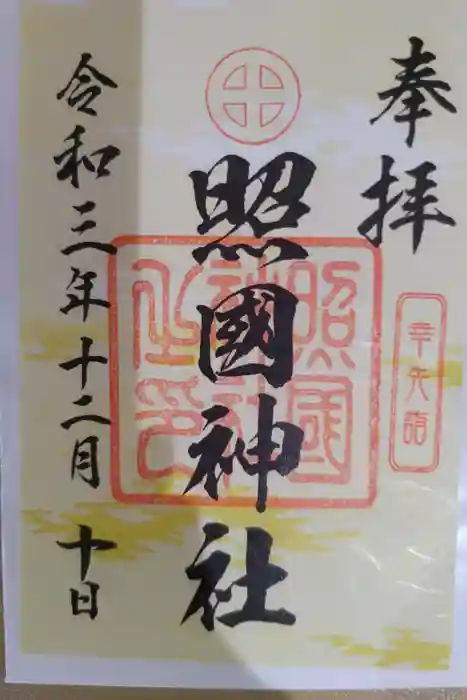 奉拝
幸先詣
照國神社
照國神社之印
令和三年十二月十日